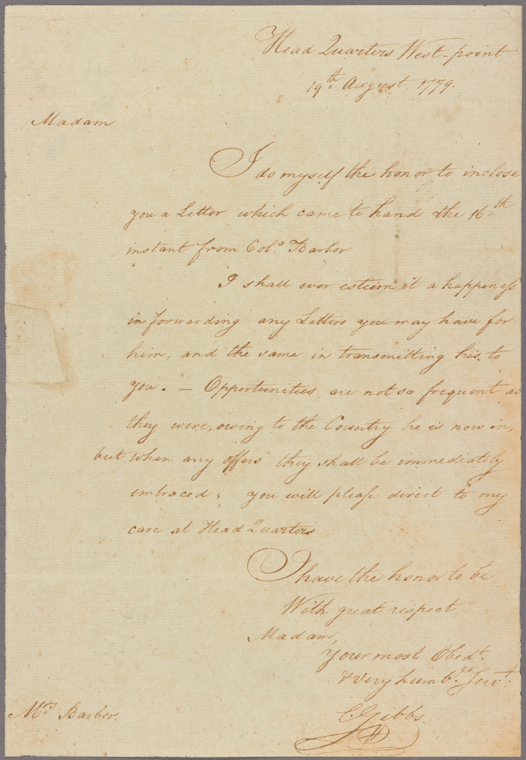 Head Quarters West-point
19th August 1779.
Madam
I do myself the honor to inclose
you a Letter which came to hand the 16th
instant from Colo. Barber
I shall ever esteem it a happiness
in forwarding any Letters you may have for
him, and the same in transmitting his to
you. — Opportunities are not so frequent as
they were, owing to the Country he is now in,
but when any offers they shall be immediately
embraced; you will please direct to my
care at Head Quarters
I have the honor to be
With great respect
Madam,
Your most Obedt.
& very humble Servt.
C Gibbs.
Mrs. Barber.